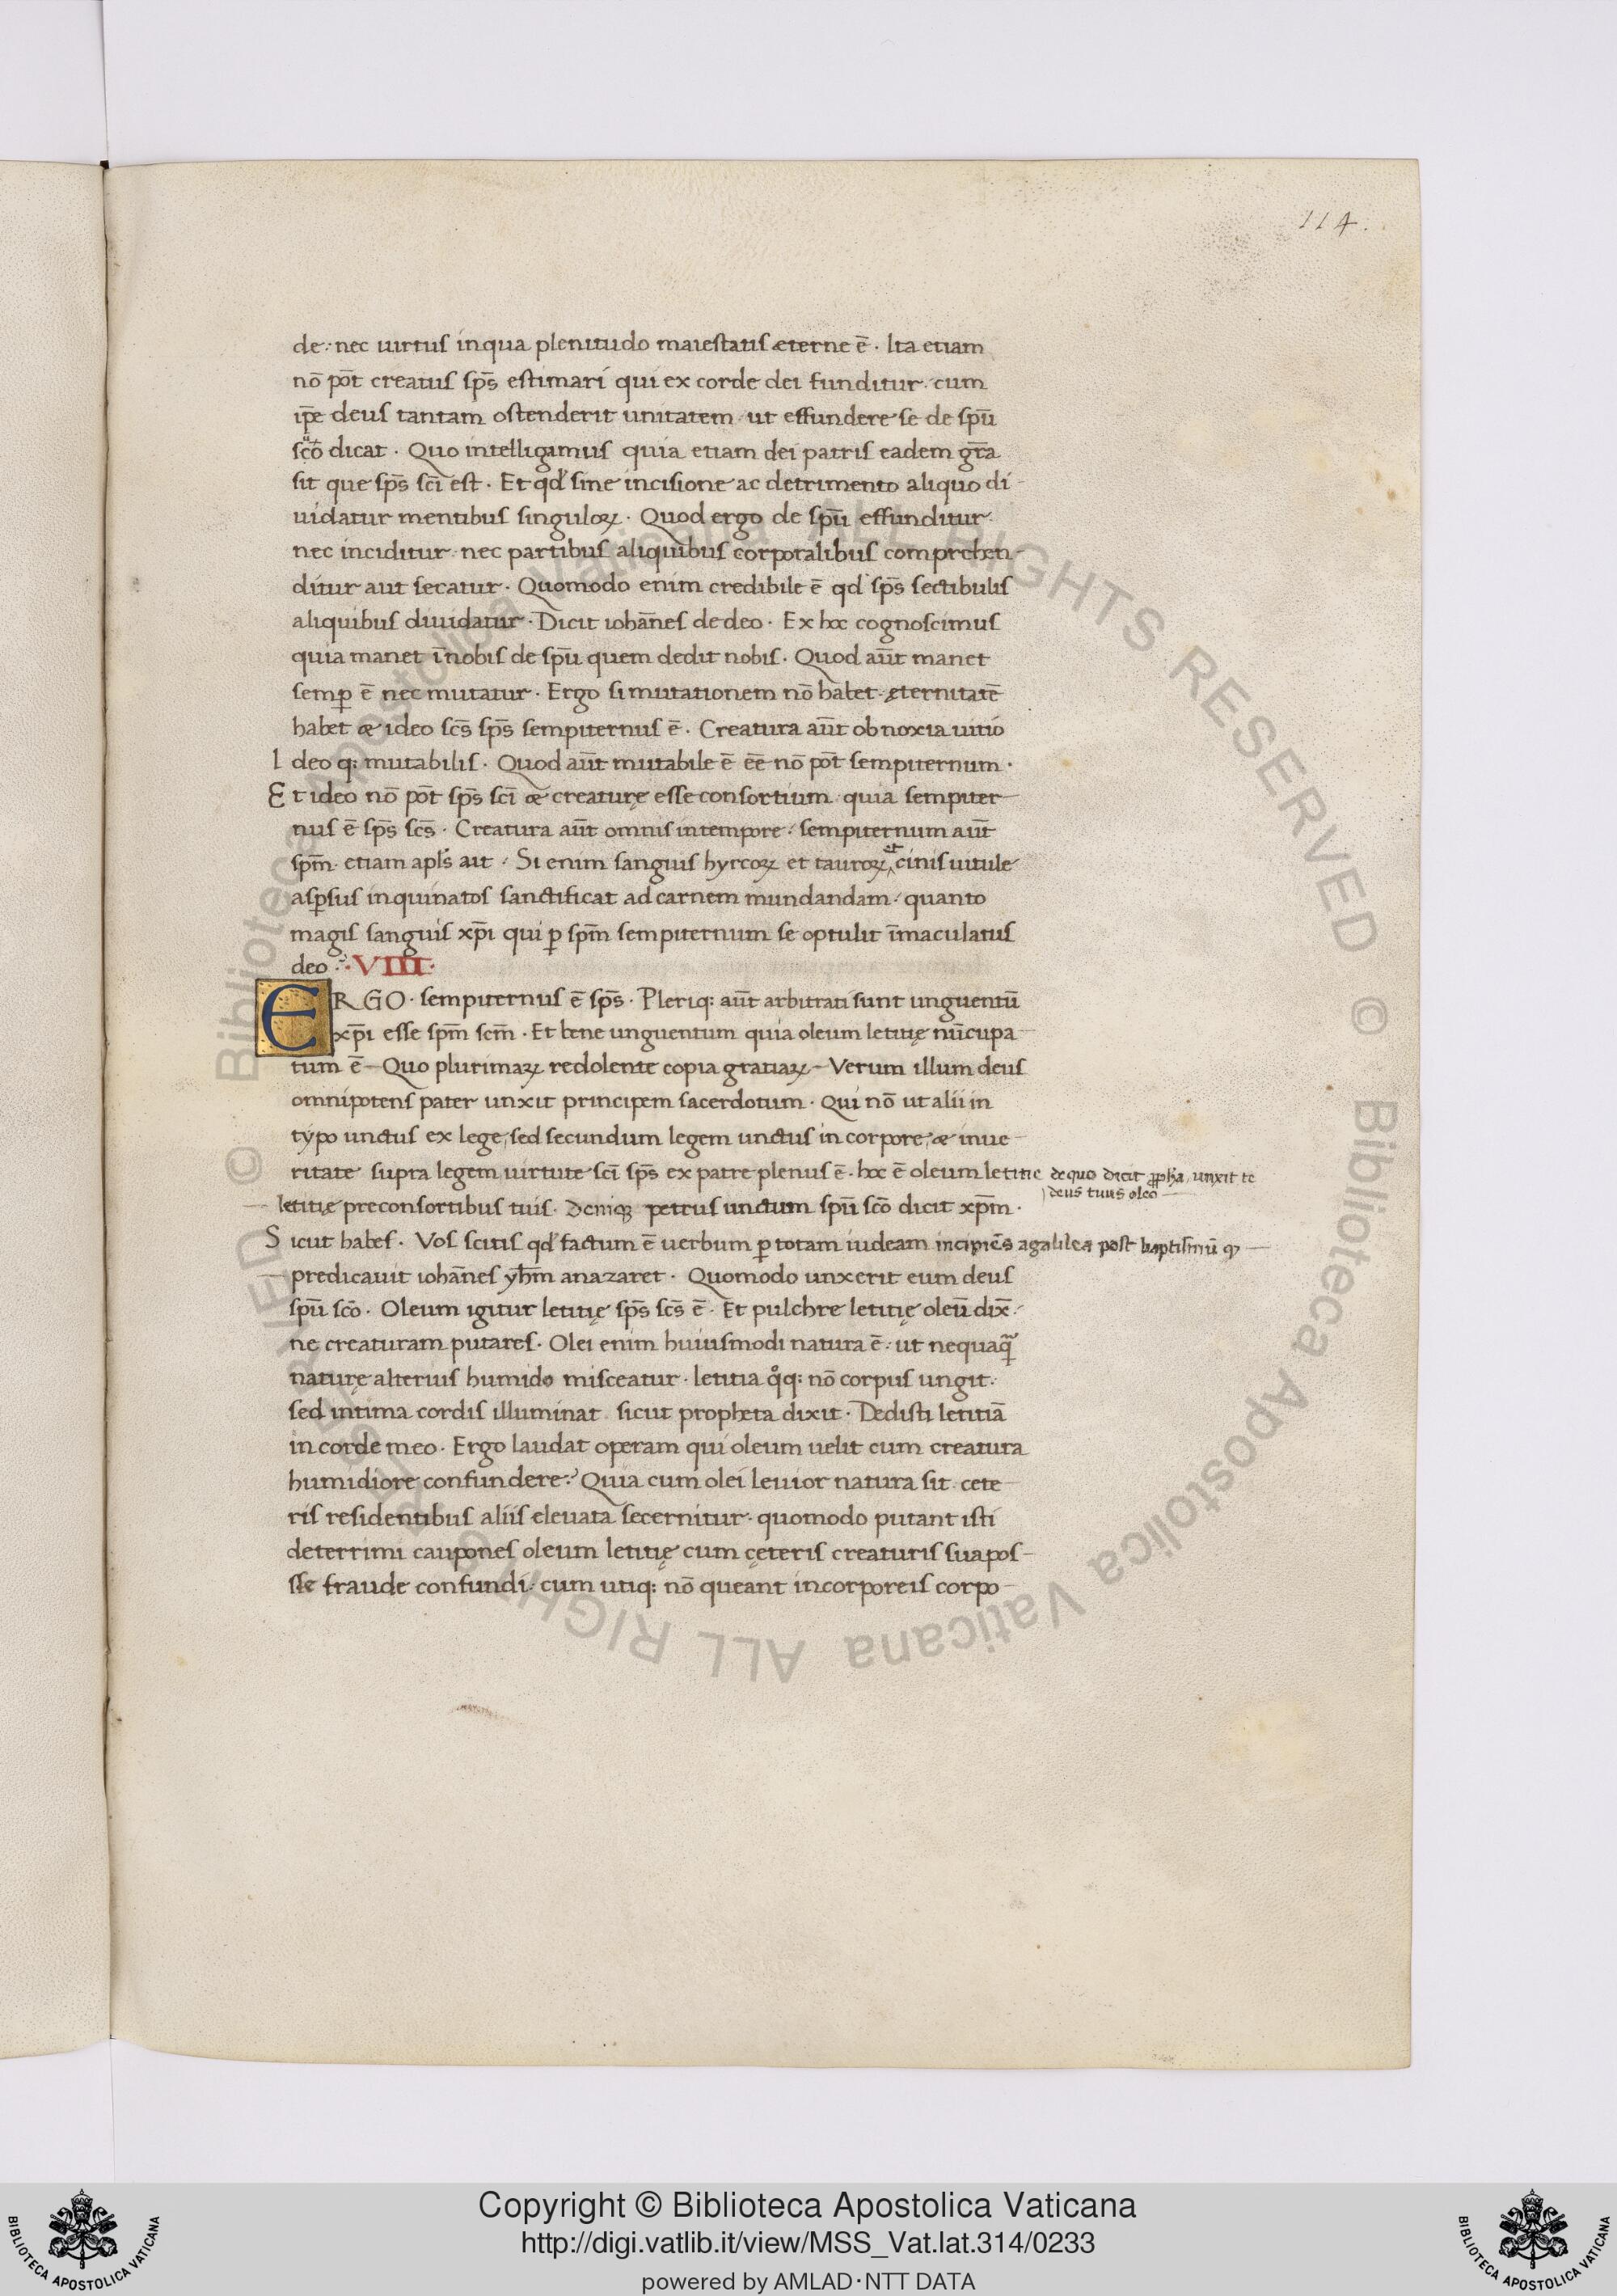 114.
de: nec uirtus inqua plenitudo maiestatis æterne ē. Ita etiam
nō pōt creatus sp̄s estimari qui ex corde dei funditur. cum
ip̄e deus tantam ostenderit unitatem. ut effundere se de sp̄u
sc̄o dicat. Quo intelligimus quia etiam dei patris eadem gr̄a
sit que sp̄s sc̄i est. Et qd' sine incisione ac detrimento aliquo di-
uidatur mentibus singuloꝝ. Quod ergo de sp̄u effunditur.
nec inciditur. nec partibus aliquibus corporalibus comprehen-
ditur aut secatur. Quomodo enim credibile ē qd' sp̄s sectibulis
aliquibus diuidatur. Dicit iohānes de deo. Ex hoc cognoscimus
quia manet ī nobis de sp̄u quem dedit nobis. Quod aūt manet
semꝑ ē nec mutatur. Ergo si mutationem nō habet. ęternitatē
habet & ideo sc̄s sp̄s sempiternus ē. Creatura aūt obnoxia uitio
Ideo q: mutabilis. Quod aūt mutabile ē ēe nō pōt sempiternum.
Et ideo nō pōt sp̄s sc̄i & creaturę esse consortium. quia sempiter-
nus ē sp̄s sc̄s. Creatura aūt omnis intempore. sempiternum aūt
sp̄m. etiam apl̄s ait. Si enim sanguis hyrcoꝝ et tauroꝝ et cinis uitule
asꝑsus inquinatos sanctificat ad carnem mundandam. quanto
magis sanguis xp̄i qui ꝑ sp̄m sempiternum se optulit īmaculatus
deo. VIII.
ERGO. sempiternus ē sp̄s. Pleriq: aūt arbitrati sunt unguentū
xp̄i esse sp̄m scm̄. Et bene unguentum quia oleum letitię nūcupa-
tum ē- Quo plurimaꝝ redolente copia gratiaꝝ- Verum illum deus
omnipotens pater unxit principem sacerdotum. Qui nō ut alii in
typo unctus ex lege, sed secundum legem unctus in corpore, & inue-
ritate supra legem uirtute sc̄i sp̄s ex patre plenus ē. hoc ē oleum letitie de quo dicit ꝓpha, unxit te
deus tuus oleo-
letitię preconsortibus tuis. Deniqꝫ petrus unctum sp̄u sc̄o dicit xp̄m.
Sicut habes. Vos scitis qd' factum ē uerbum ꝑ totam iudeam incipiēs a galilea post baptismū qꝫ-
predicauit iohānes yh̄m anazaret. Quomodo unxerit eum deus
sp̄u sc̄o. Oleum igitur letitię sp̄s sc̄s ē. Et pulchre letitię oleū dix̄.
ne creaturam putares. Olei enim huiusmodi natura ē: ut nequaq̄
naturę alterius humido misceatur. letitia qͦq: nō corpus ungit.
sed intima cordis illuminat. sicut propheta dixit. Dedisti letitiā
in corde meo. Ergo laudat operam qui oleum uelit cum creatura
humidiore confundere? Quia cum olei leuior natura sit. cete-
ris residentibus aliis eleuata secernitur. quomodo putant isti
deterrimi caupones oleum letitię cum cęteris creaturis sua pos-
sse fraude confundi. cum utiq: nō queant incorporeis corpo-
Copyright © Biblioteca Apostolica Vaticana
http://digi.vatlib.it/view/MSS_Vat.lat.314/0233
powered by AMLAD·NTT DATA
BIBLIOTECA APOSTOLICA VATICANA
BIBLIOTECA APOSTOLICA VATICANA
© Biblioteca Apostolica Vaticana ALL RIGHTS RESERVED
© Biblioteca Apostolica Vaticana ALL RIGHTS RESERVED